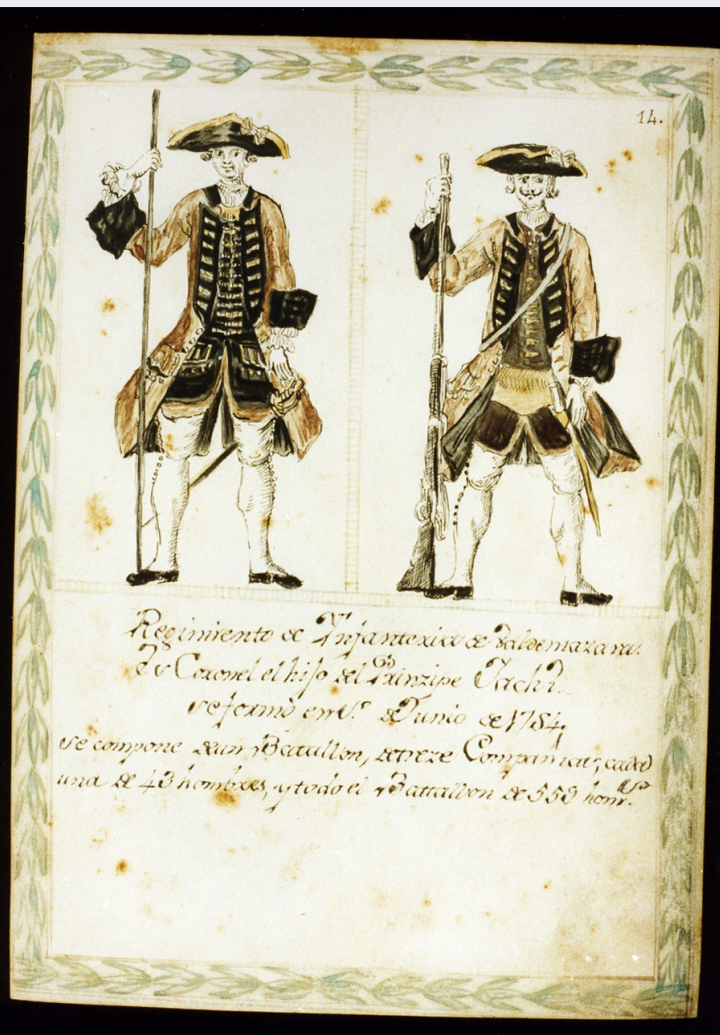 14.
Regimiento de Ynfanteria de Valdemazara.
Es Coronel el hijo del Prinzipe
se formó en 1.º de Junio de 1754.
se compone de un Batallon, de treze Compañias, cada
una de 43 hombres, y todo el Battallon de 559 homs.